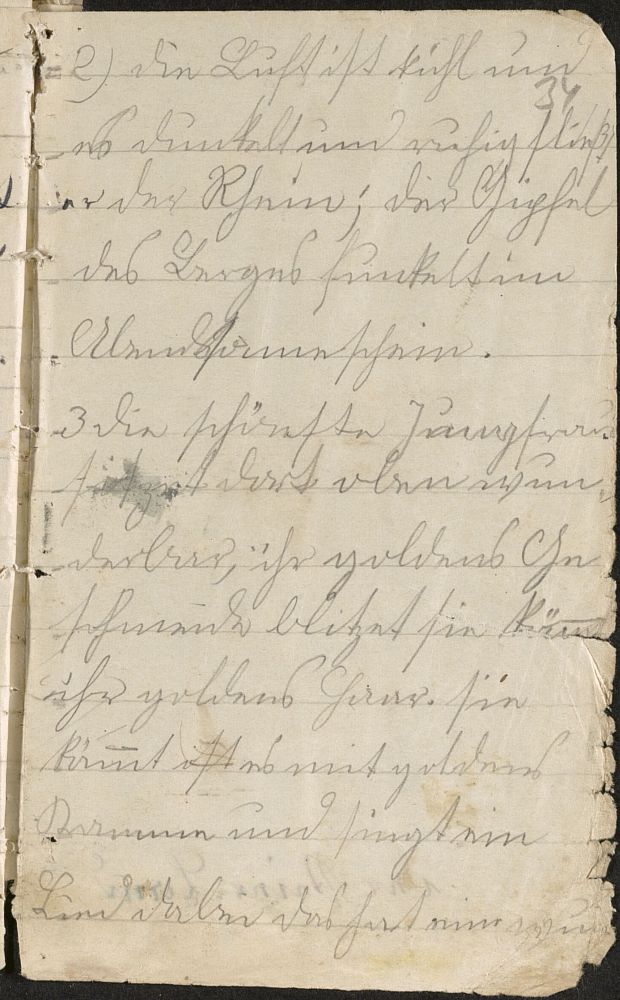 2) die Luft ist kühl und
34
es dunkelt und ruhig fließt
er der Rhein; der Gipfel
des Berges funkelt im
Abendsonneschein.
3 die schönste Jungfrau
sitzet dort oben wun-
derbar, ihr goldens Ge
schmeide blitzet sie kämmt
ihr goldens Haar. sie
kämmt es mit goldens
Kamme und singt ein
Lied dabei das hat eine wun